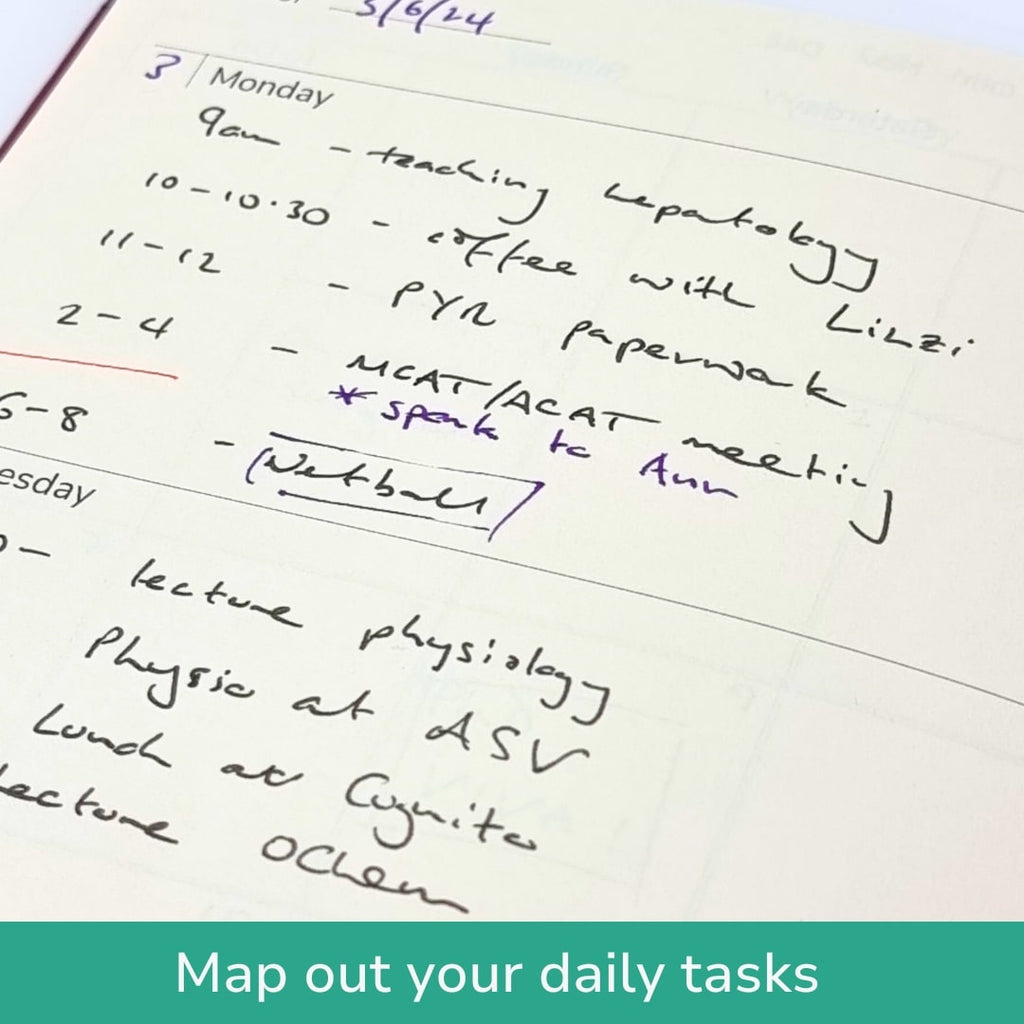 3/6/24
3 Monday
9am - teaching hepatology
10-10.30 - coffee with Linzi
11-12 - PYR paperwork
2-4 - MCAT/ACAT meeting
* speak to Ann
6-8 - Netball
esday
lecture physiology
Physio at ASV
Lunch at Cognito
Lecture OChem
Map out your daily tasks